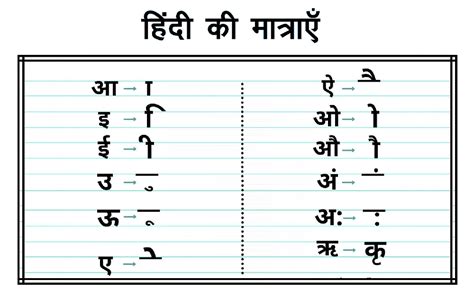 हिंदी की मात्राएँ
आ → ा
इ → ि
ई → ी
उ → ु
ऊ → ू
ए → े
ऐ → ै
ओ → ो
औ → ौ
अं → ं
अ: → :
ऋ → कृ